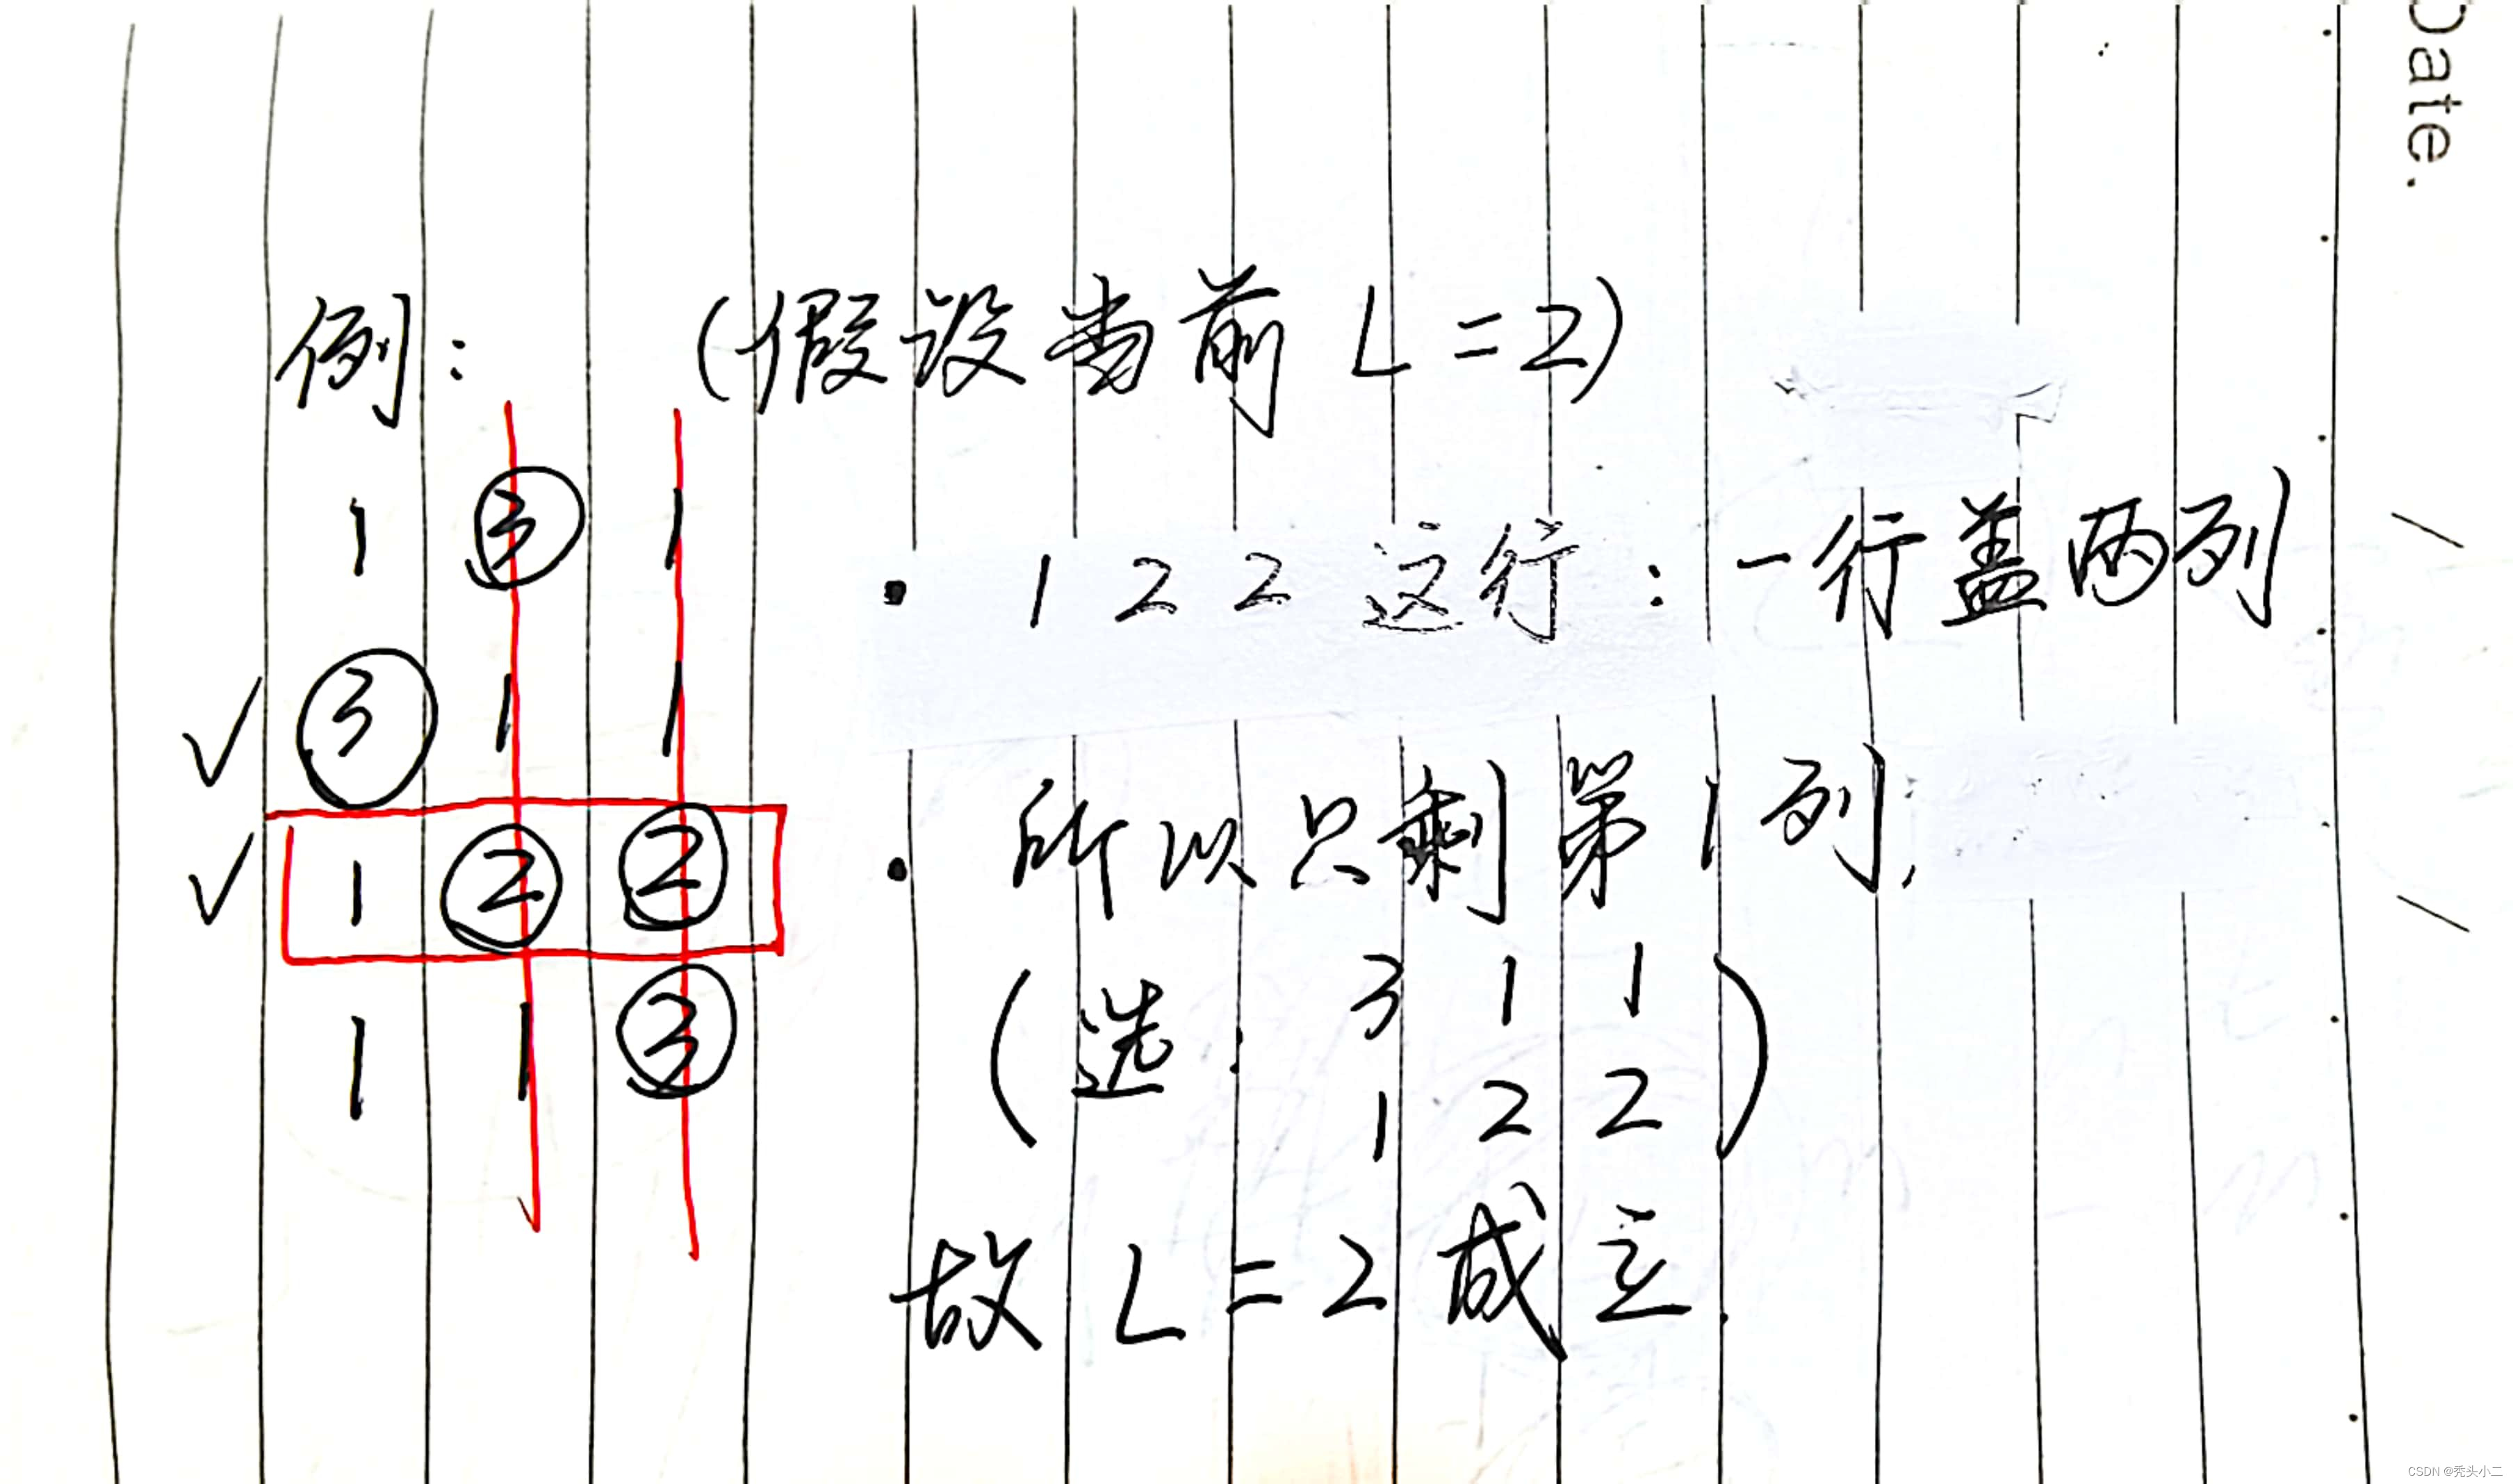 Date.
例: (假设当前 L=2)
1 ③ 1
③ 1 1
1 ② ②
1 1 ③
• 1 2 2 这行: 一行盖两列
• 所以只剩第1列,
(选: 3 1 1
1 2 2)
故 L=2 成立.
CSDN @秃头小二